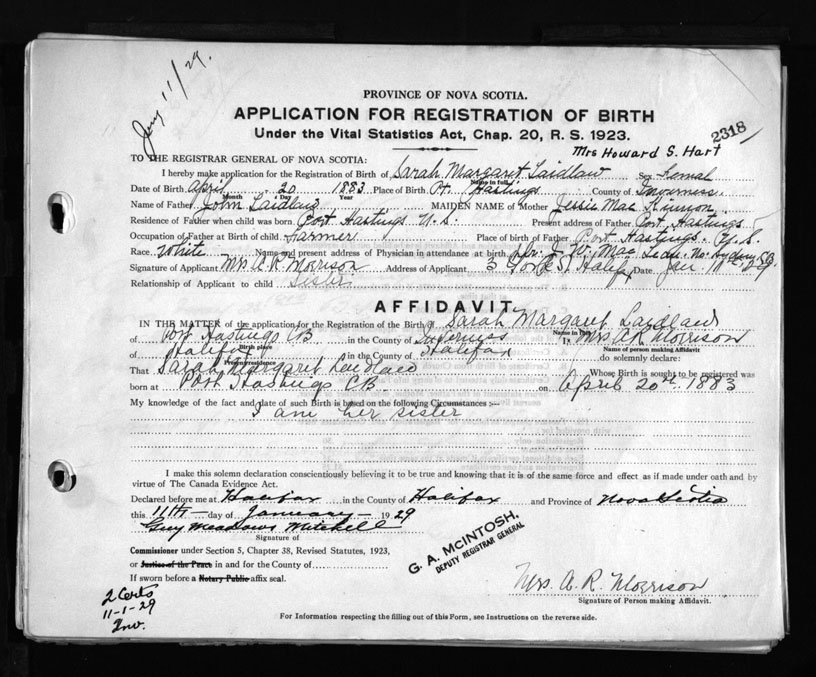 Jany 11/29.
PROVINCE OF NOVA SCOTIA.
APPLICATION FOR REGISTRATION OF BIRTH
Under the Vital Statistics Act, Chap. 20, R. S. 1923.
2318
Mrs Howard S. Hart
TO THE REGISTRAR GENERAL OF NOVA SCOTIA:
I hereby make application for the Registration of Birth of Sarah Margaret Laidlaw Sex Femal
Name in full
Date of Birth April 20 1883 Place of Birth Pt. Hastings County of Inverness
Month Day Year
Name of Father John Laidlaw MAIDEN NAME of Mother Jessie Mac Kinnon
Residence of Father when child was born Port Hastings N.S. Present address of Father Port Hastings
Occupation of Father at Birth of child Farmer Place of birth of Father Port Hastings
Race White Name and present address of Physician in attendance at birth Dr. J. W. Mac
Signature of Applicant Mrs A R Morrison Address of Applicant 3 Halifax Date 29
Relationship of Applicant to child Sister
AFFIDAVIT
IN THE MATTER of the application for the Registration of the Birth of Sarah Margaret Laidlaw
Name in Full
of Port Hastings CB in the County of Inverness I, Mrs A R Morrison
Birth place Name of person making Affidavit
of Halifax in the County of Halifax do solemnly declare:
Present residence
That Sarah Margaret Laidlaw Whose Birth is sought to be registered was
born at Port Hastings CB. on April 20th 1883
My knowledge of the fact and date of such Birth is based on the following Circumstances :—
I am her sister
I make this solemn declaration conscientiously believing it to be true and knowing that it is of the same force and effect as if made under oath and by
virtue of The Canada Evidence Act.
Declared before me at Halifax in the County of Halifax and Province of Nova Scotia
this 11th day of January 1929
Guy Meadows Mitchell
Signature of
Commissioner under Section 5, Chapter 38, Revised Statutes, 1923,
or Justice of the Peace in and for the County of
If sworn before a Notary Public affix seal.
G. A. McINTOSH,
DEPUTY REGISTRAR GENERAL
Mrs. A. R. Morrison
Signature of Person making Affidavit.
2 Certs
11-1-29
For Information respecting the filling out of this Form, see Instructions on the reverse side.